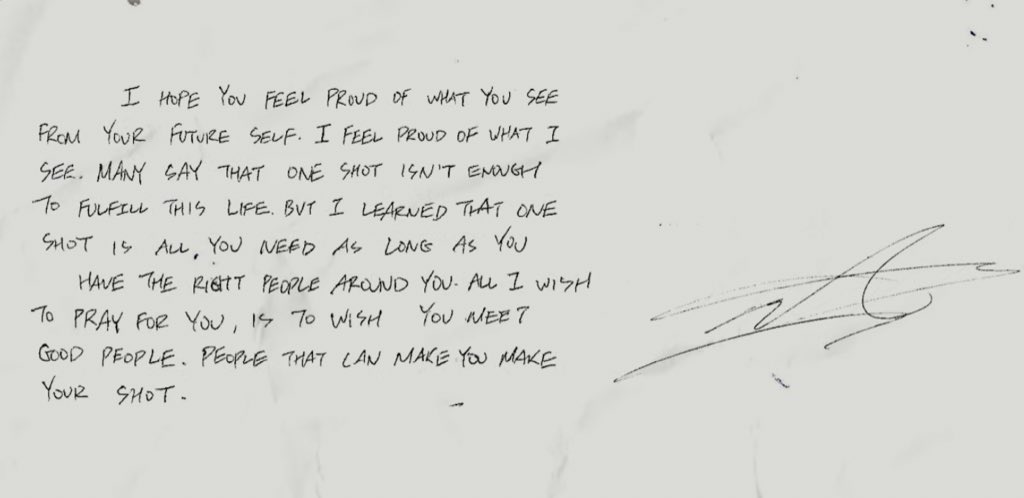 I HOPE YOU FEEL PROUD OF WHAT YOU SEE
FROM YOUR FUTURE SELF. I FEEL PROUD OF WHAT I
SEE. MANY SAY THAT ONE SHOT ISN'T ENOUGH
TO FULFILL THIS LIFE. BUT I LEARNED THAT ONE
SHOT IS ALL, YOU NEED AS LONG AS YOU
HAVE THE RIGHT PEOPLE AROUND YOU. ALL I WISH
TO PRAY FOR YOU, IS TO WISH YOU MEET
GOOD PEOPLE. PEOPLE THAT CAN MAKE YOU MAKE
YOUR SHOT.